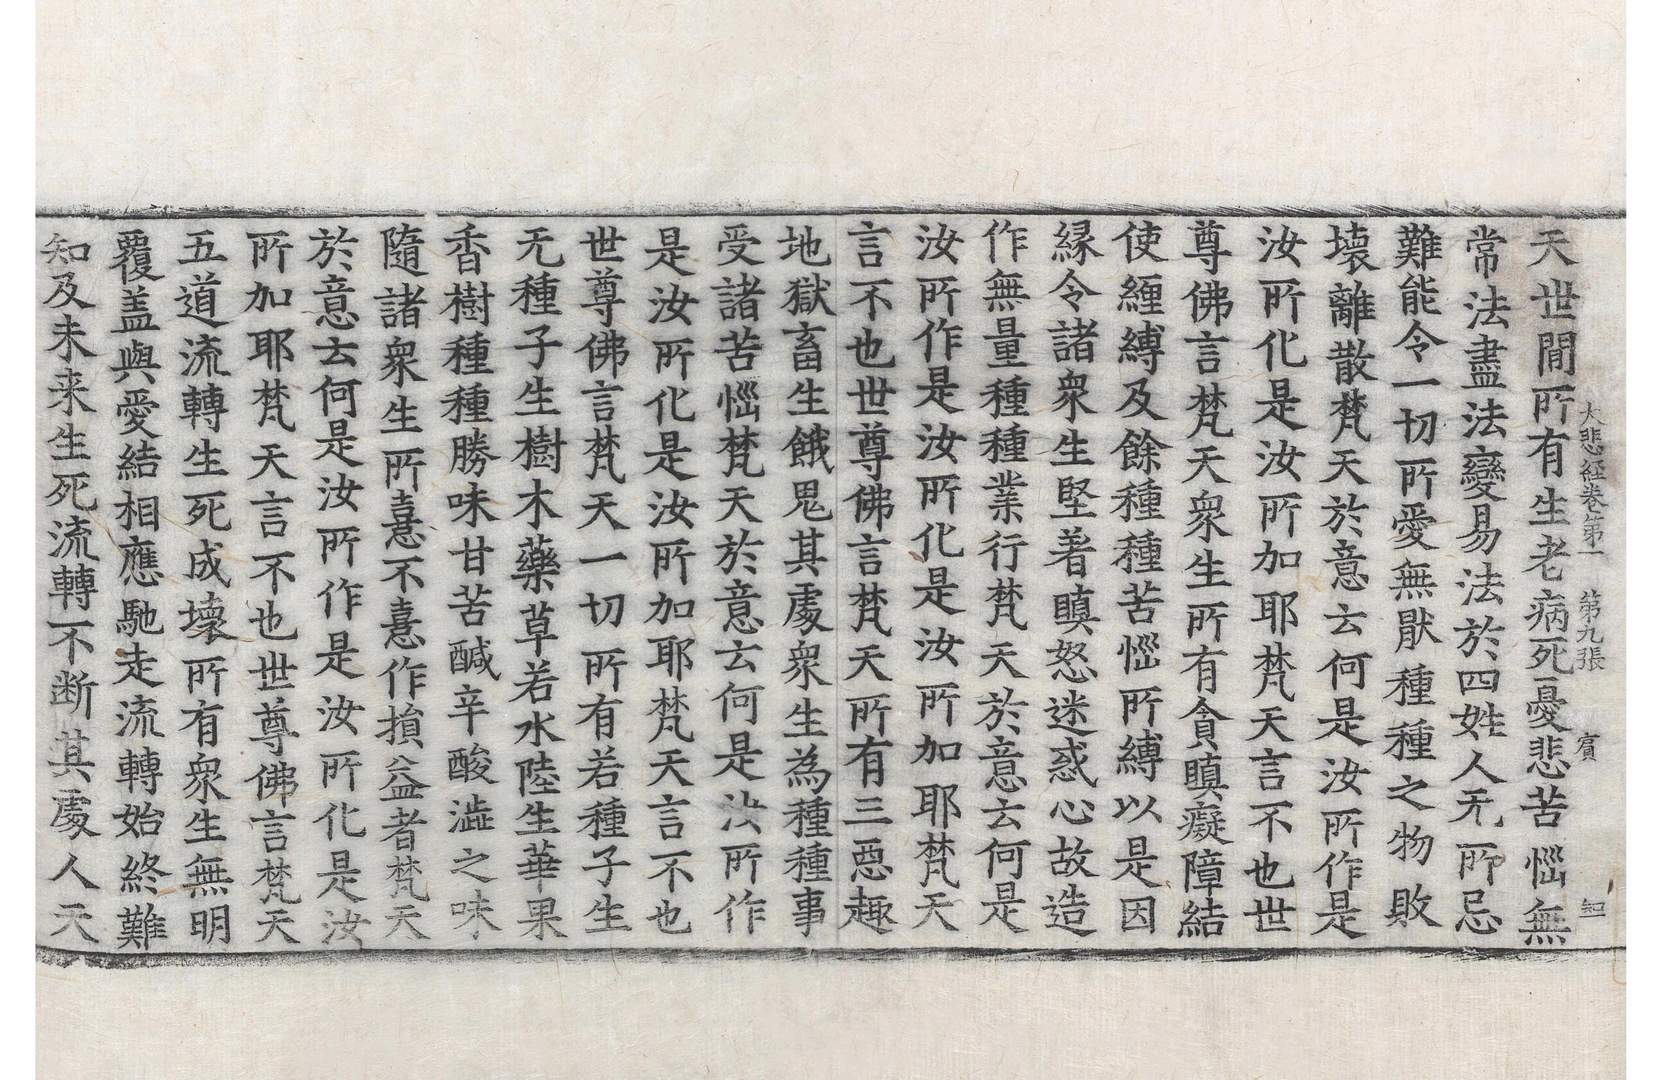 大悲經卷第一 第九張 賓 知
天世間所有生老病死憂悲苦惱無
常法盡法變易法於四姓人无所忌
難能令一切所愛無猒種種之物敗
壞離散梵天於意云何是汝所作是
汝所化是汝所加耶梵天言不也世
尊佛言梵天衆生所有貪瞋癡障結
使纏縛及餘種種苦惱所縛以是因
緣令諸衆生堅著瞋怒迷惑心故造
作無量種種業行梵天於意云何是
汝所作是汝所化是汝所加耶梵天
言不也世尊佛言梵天所有三惡趣
地獄畜生餓鬼其處衆生為種種事
受諸苦惱梵天於意云何是汝所作
是汝所化是汝所加耶梵天言不也
世尊佛言梵天一切所有若種子生
无種子生樹木藥草若水陸生華果
香樹種種勝味甘苦醎辛酸澁之味
隨諸衆生所憙不憙作損益者梵天
於意云何是汝所作是汝所化是汝
所加耶梵天言不也世尊佛言梵天
五道流轉生死成壞所有衆生無明
覆盖與愛結相應馳走流轉始終難
知及未来生死流轉不断其處人天